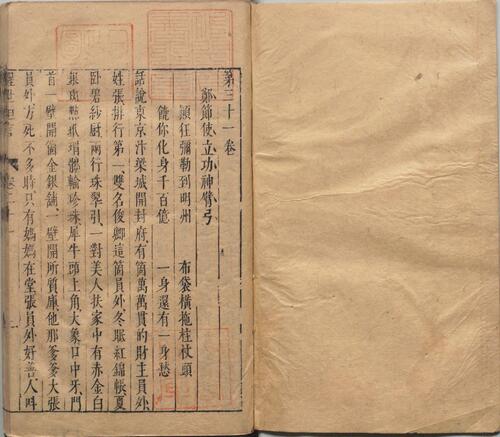 第三十一卷
鄭節使立功神臂弓
顛狂彌勒到明州 布袋橫拖拄杖頭
饒你化身千百億 一身還有一身愁
話說東京汴梁城開封府有箇萬萬貫的財主員外
姓張排行第一雙名俊卿這箇員外冬眠紅錦帳夏
卧碧紗厨兩行珠翠引一對美人扶家中有赤金白
銀斑點玳瑁鶻輪珍珠犀牛頭上角大象口中牙門
首一壁開箇金銀鋪一壁開所質庫他那爹爹大張
員外方死不多時只有媽媽在堂張員外好善人叫